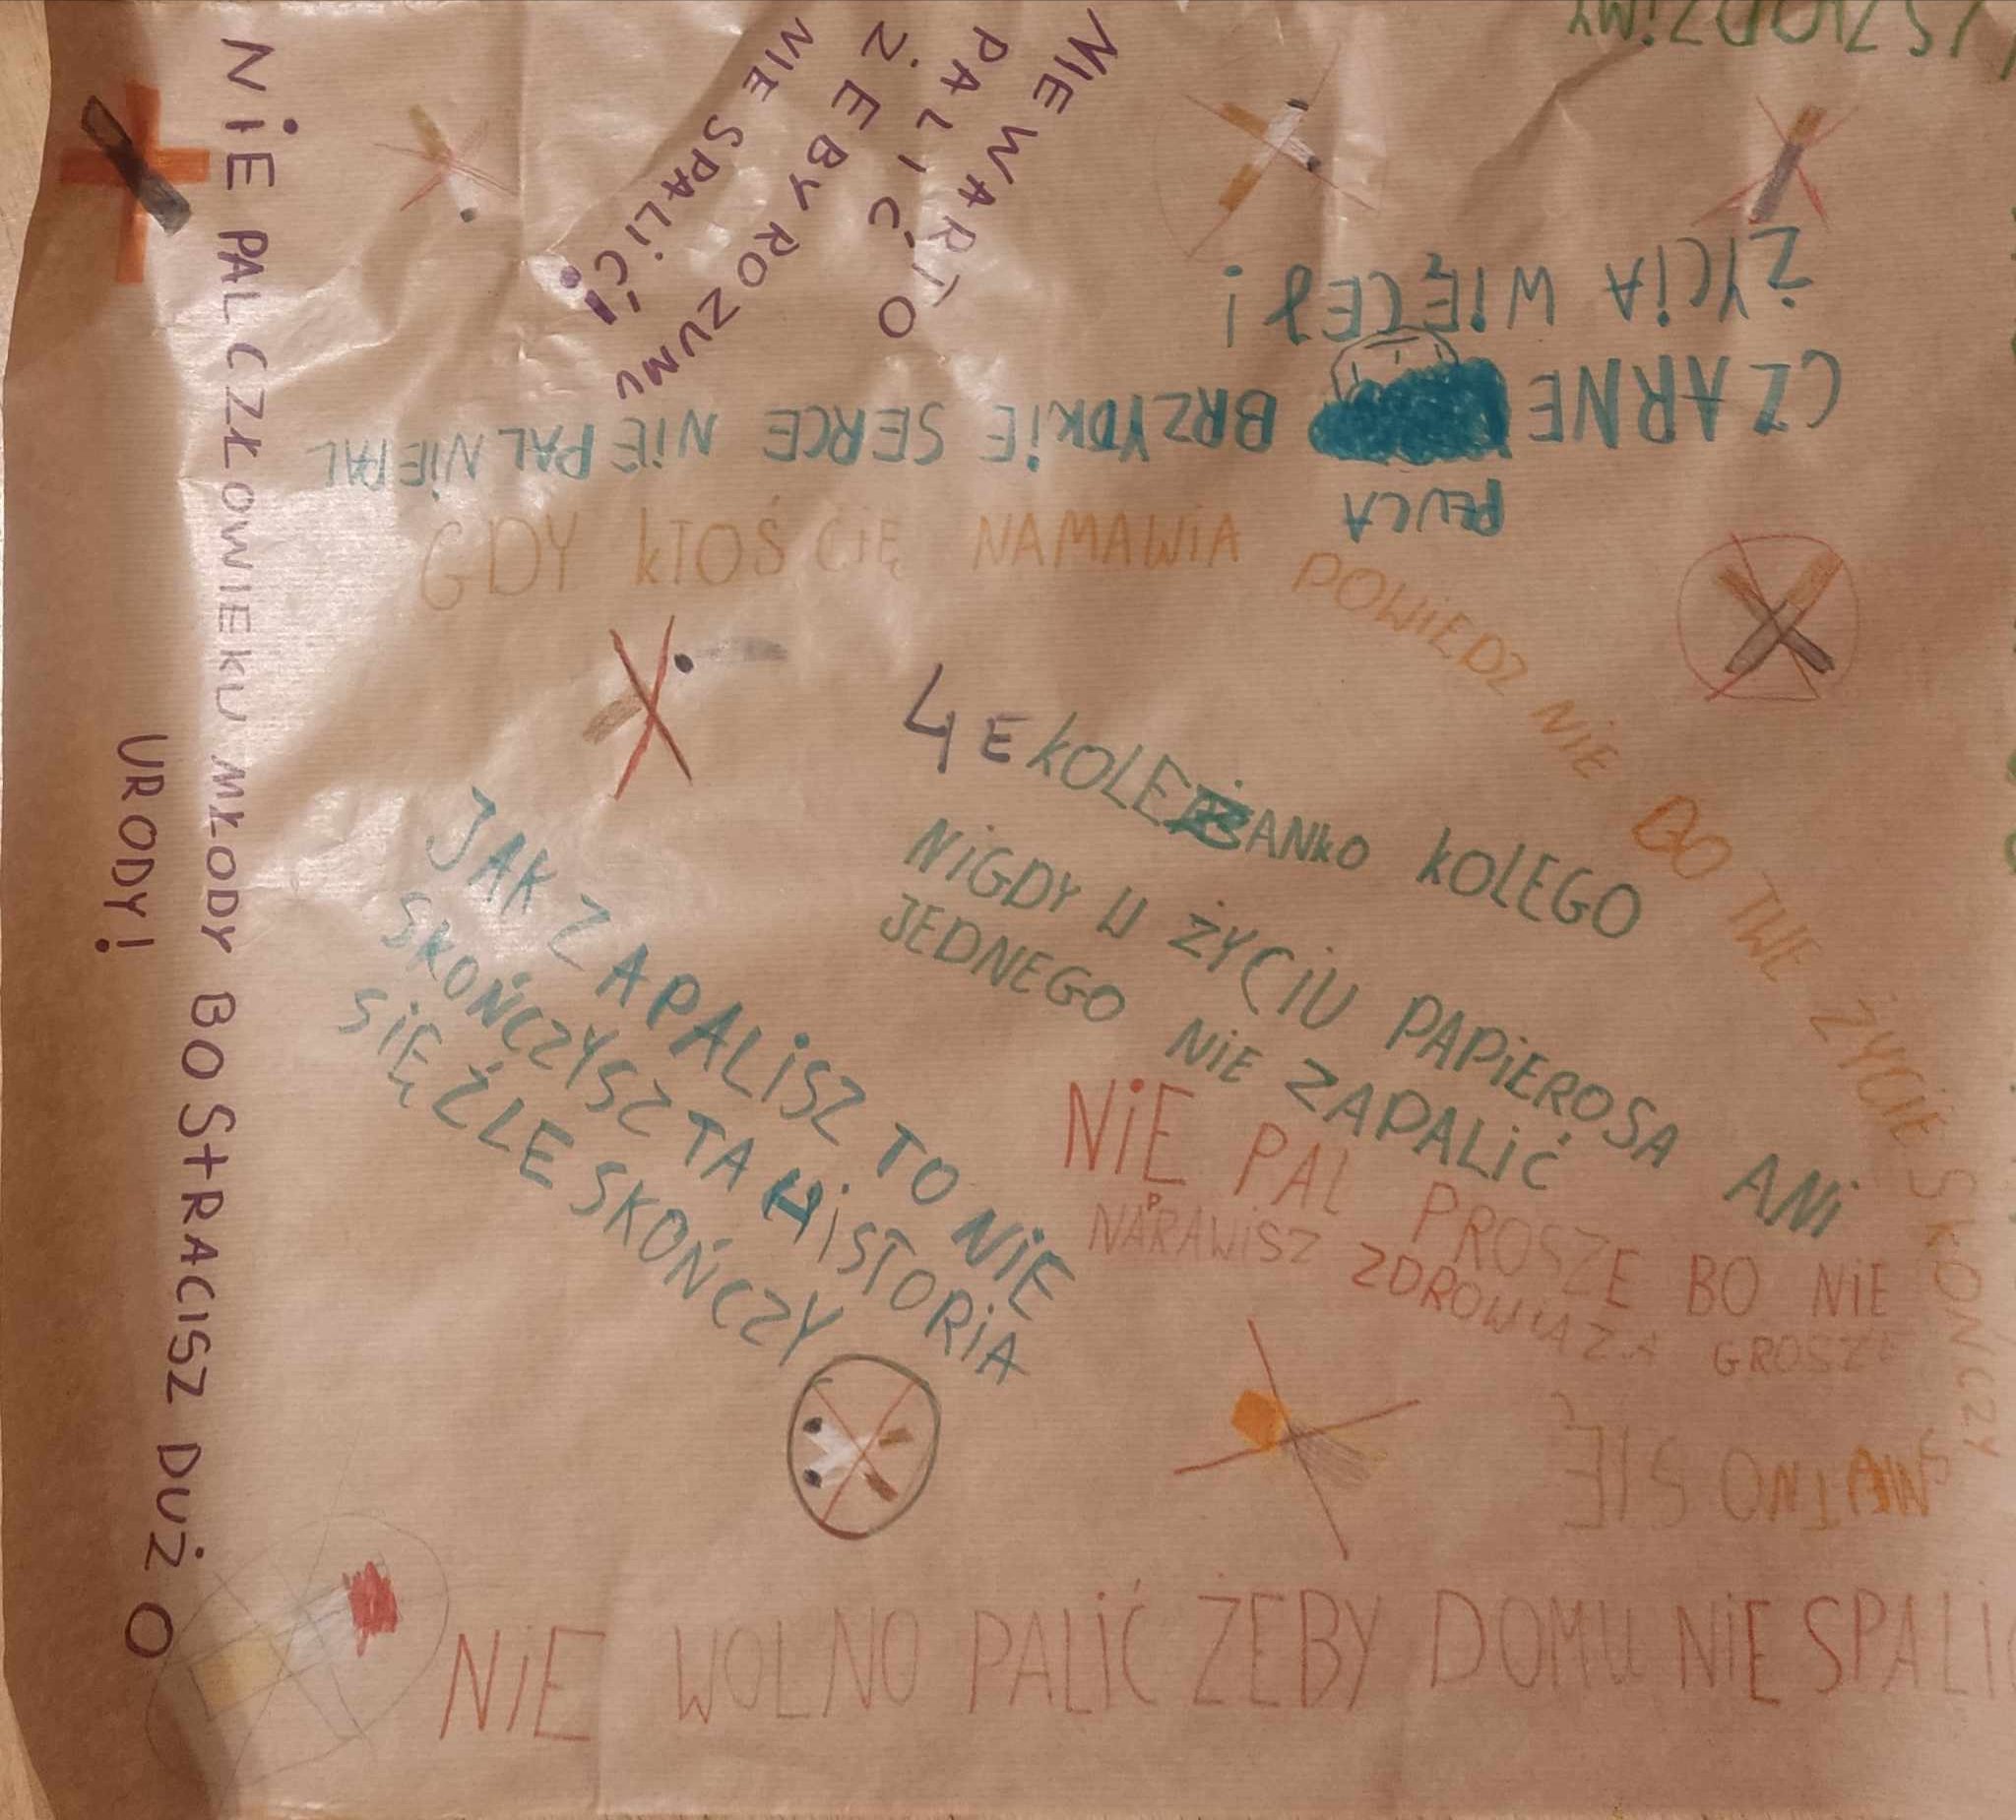 NIE WARTO
PALIĆ TO
ŻEBY ROZUMU
NIE SPALIĆ!
NIE PAL CZŁOWIEKU MŁODY BO STRACISZ DUŻO
URODY!
CZARNE PŁUCA BRZYDKIE SERCE NIE PAL NIE PAL
ŻYCIA WIĘCEJ!
GDY KTOŚ CIĘ NAMAWIA POWIEDZ NIE BO TWE ŻYCIE SKOŃCZY
SIĘ
4E
KOLEŻANKO KOLEGO
NIGDY W ŻYCIU PAPIEROSA ANI
JEDNEGO NIE ZAPALIĆ
JAK ZAPALISZ TO NIE
SKOŃCZYSZ TA HISTORIA
SIĘ ŹLE SKOŃCZY
NIE PAL PROSZE BO NIE
NAPRAWISZ ZDROWIA ZA GROSZE
NIE WOLNO PALIĆ ŻEBY DOMU NIE SPALIĆ